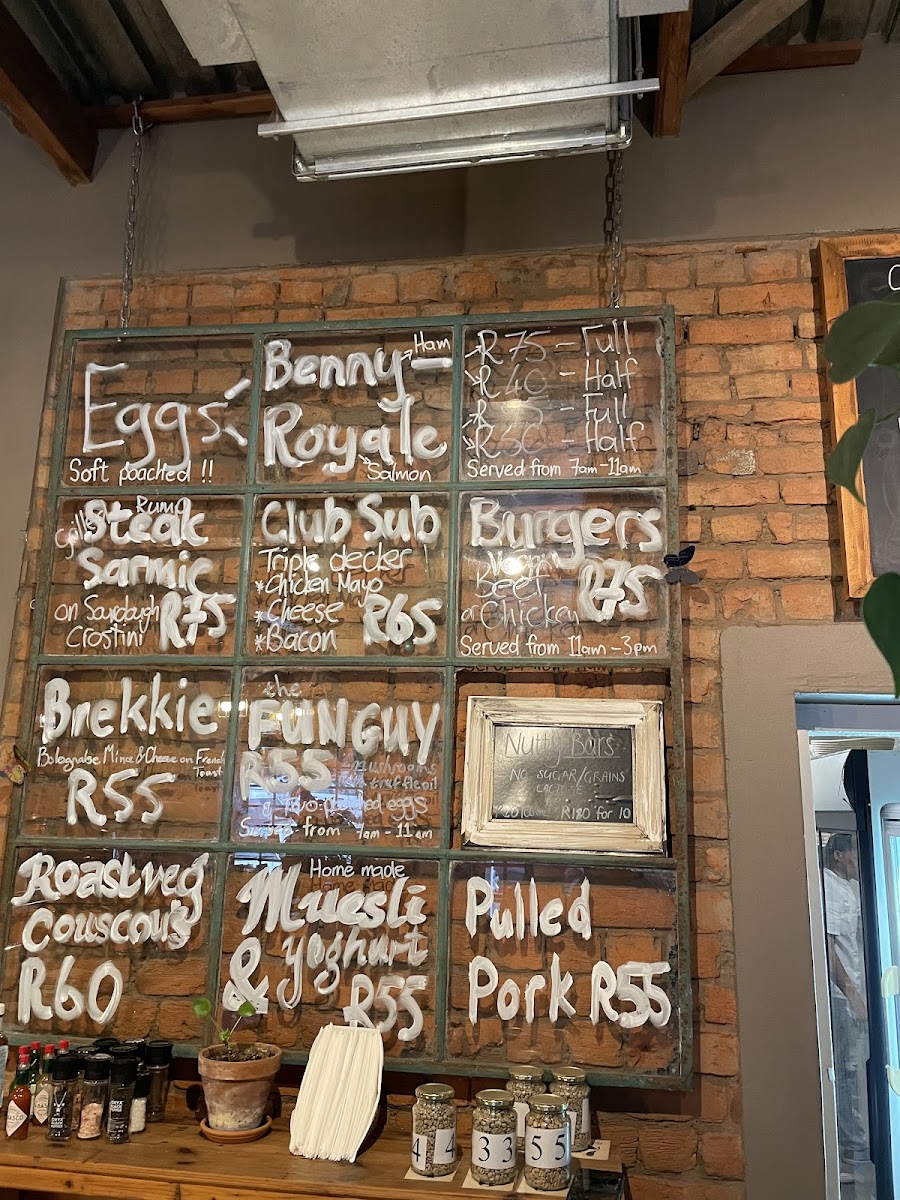 Eggs:
Soft poached !!
Benny - Ham
Royale
Salmon
R75 - Full
R40 - Half
Full
Half
Served from 7am-11am
Rump
Steak
Sarmie
on Sourdough
Crostini
R75
Club Sub
Triple decker
*Chicken Mayo
*Cheese
*Bacon
R65
Burgers
Beef
or Chicken
R75
Served from 11am-3pm
Brekkie
Bolognaise Mince & Cheese on French
Toast
R55
the
FUN GUY
R55
Mushrooms
truffle oil
two poached eggs
Served from 7am-11am
Nutty Bars
NO SUGAR/GRAINS
LACTOSE
R180 for 10
Roast veg
Couscous
R60
Home made
Muesli
& yoghurt
R55
Pulled
Pork R55
4 4
3 3
5 5